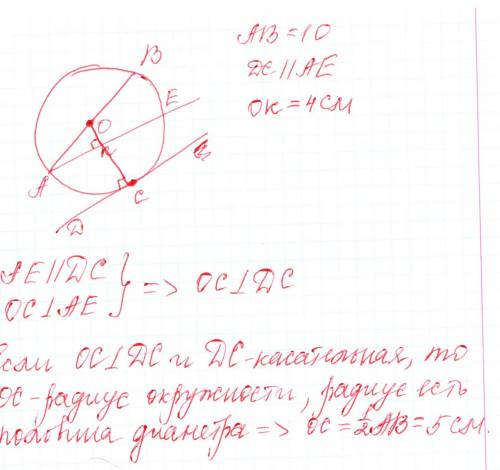 B
AB = 10
DC || AE
E
OK = 4 см
O
K
A
C
D
AE || DC
OC ⊥ AE } => OC ⊥ DC
Если OC ⊥ DC и DC - касательная, то
OC - радиус окружности, радиус есть
половина диаметра => OC = 1/2 AB = 5 см.